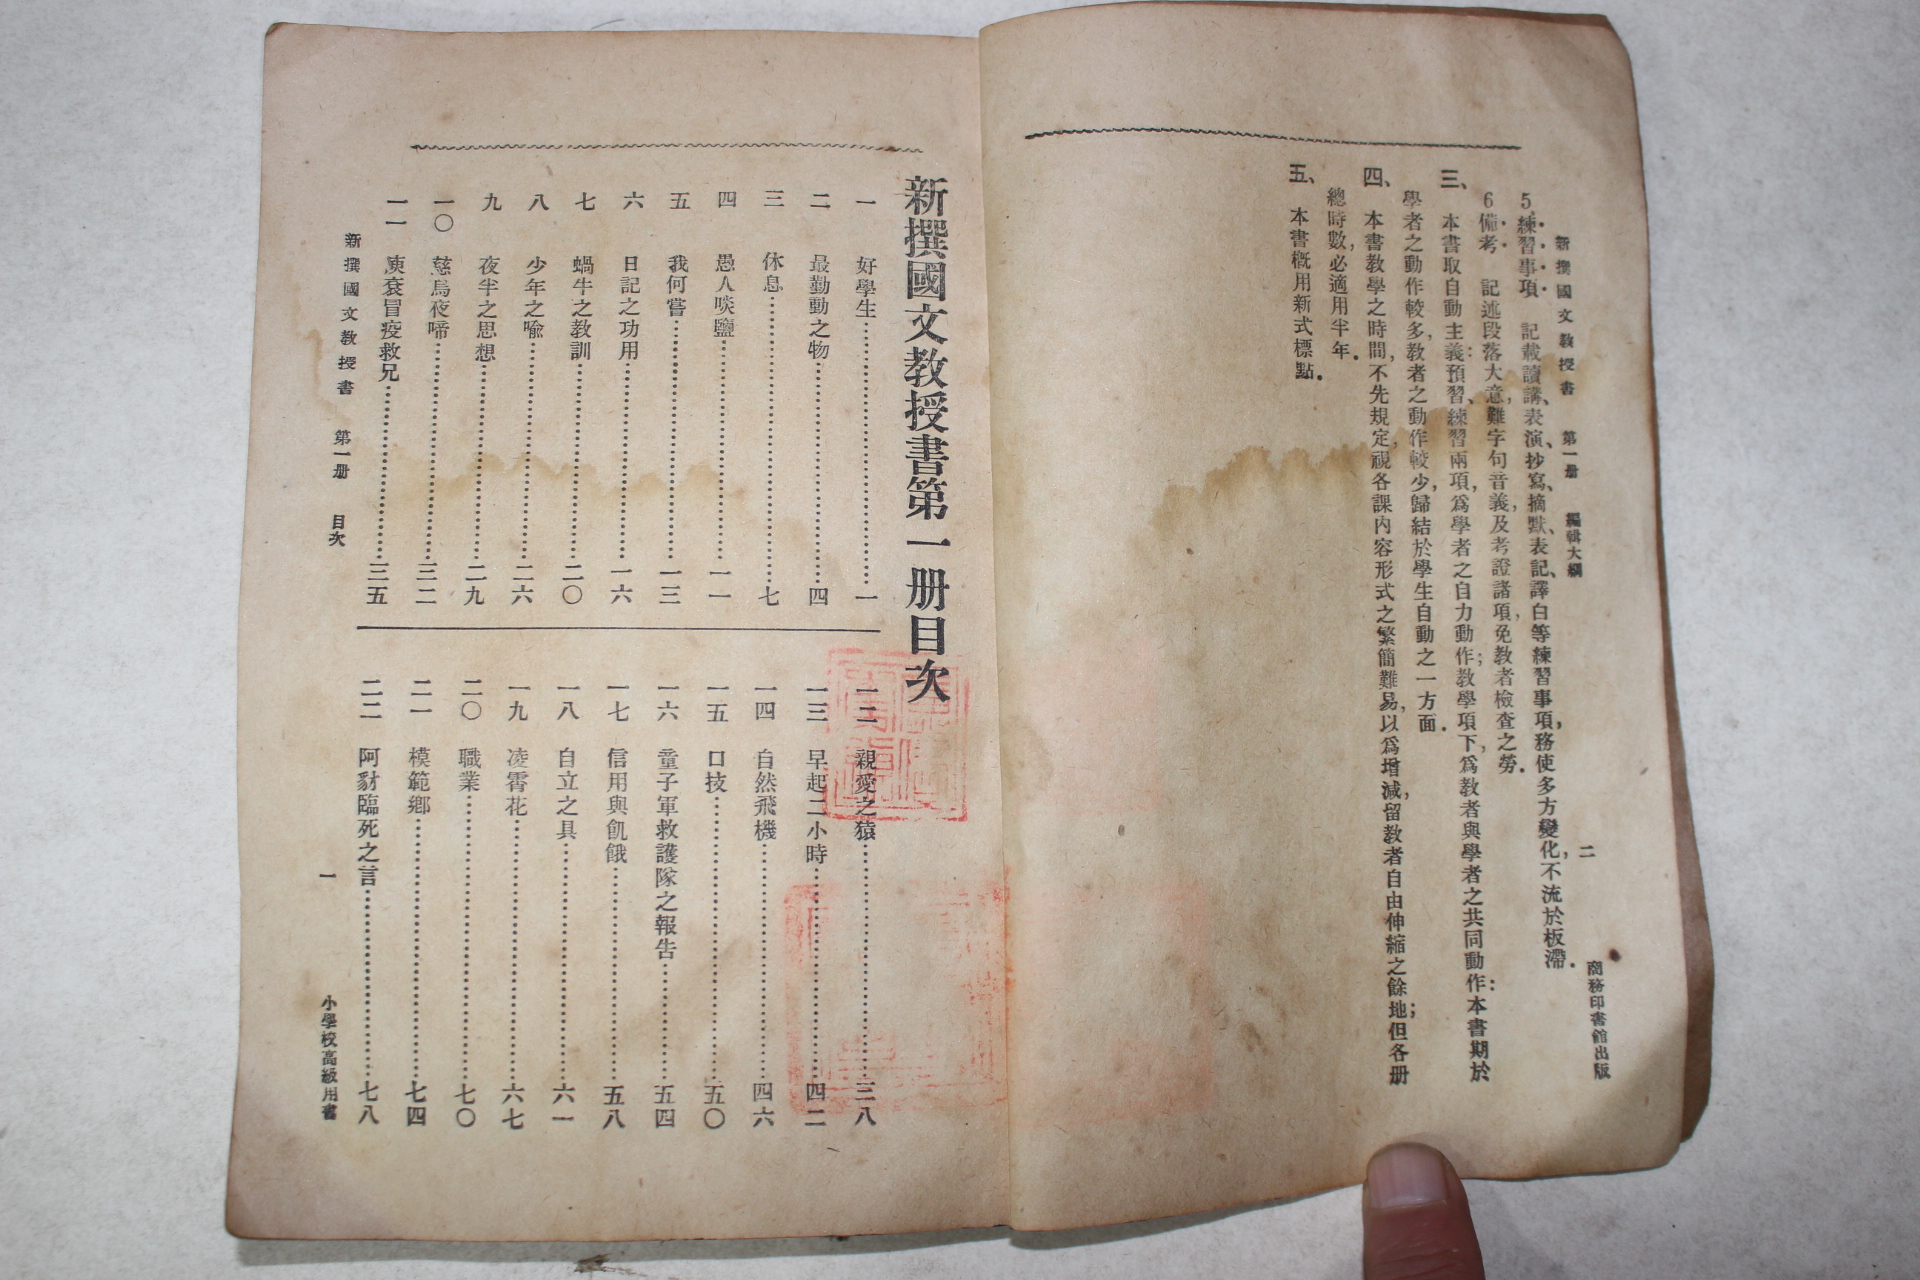 新撰國文教授書 第一册 編輯大綱 二 商務印書館出版
5 練習事項 記載讀講、表演、抄寫、摘默、表記、譯白等練習事項，務使多方變化，不流於板滯．
6 備考 記述段落大意，難字句音義，及考證諸項，免教者檢查之勞．
三、本書取自動主義：預習、練習兩項，爲學者之自力動作；教學項下，爲教者與學者之共同動作：本書期於
學者之動作較多，教者之動作較少，歸結於學生自動之一方面．
四、本書教學之時間，不先規定，視各課內容形式之繁簡難易，以爲增減，留教者自由伸縮之餘地；但各册
總時數，必適用半年．
五、本書概用新式標點．
新撰國文教授書第一册目次
一 好學生……一
二 最勤動之物……四
三 休息……七
四 愚人啖鹽……一一
五 我何嘗……一三
六 日記之功用……一六
七 蝸牛之教訓……二〇
八 少年之喩……二六
九 夜半之思想……二九
一〇 慈烏夜啼……三二
一一 庾袞冒疫救兄……三五
一二 親愛之猿……三八
一三 早起二小時……四二
一四 自然飛機……四六
一五 口技……五〇
一六 童子軍救護隊之報告……五四
一七 信用與飢餓……五八
一八 自立之具……六一
一九 凌霄花……六七
二〇 職業……七〇
二一 模範鄉……七四
二二 阿豺臨死之言……七八
新撰國文教授書 第一册 目次 一 小學校高級用書